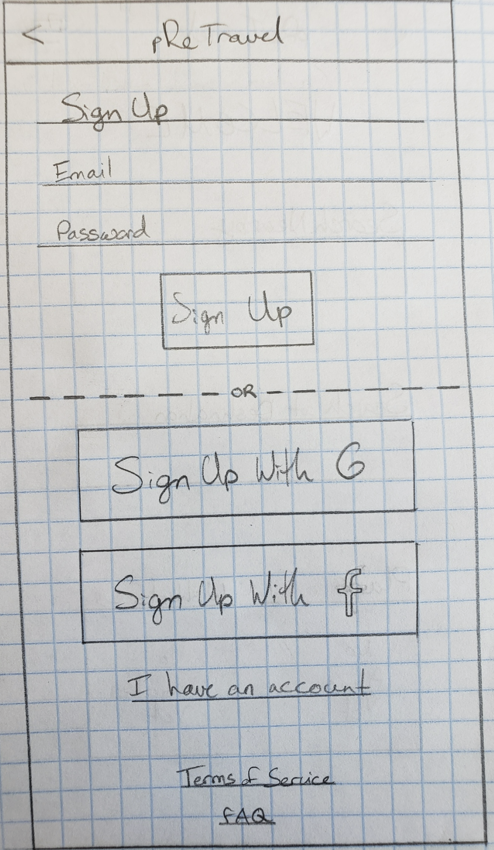 < pRe Travel
Sign Up
Email
Password
Sign Up
OR
Sign Up With G
Sign Up With f
I have an account
Terms of Service
FAQ